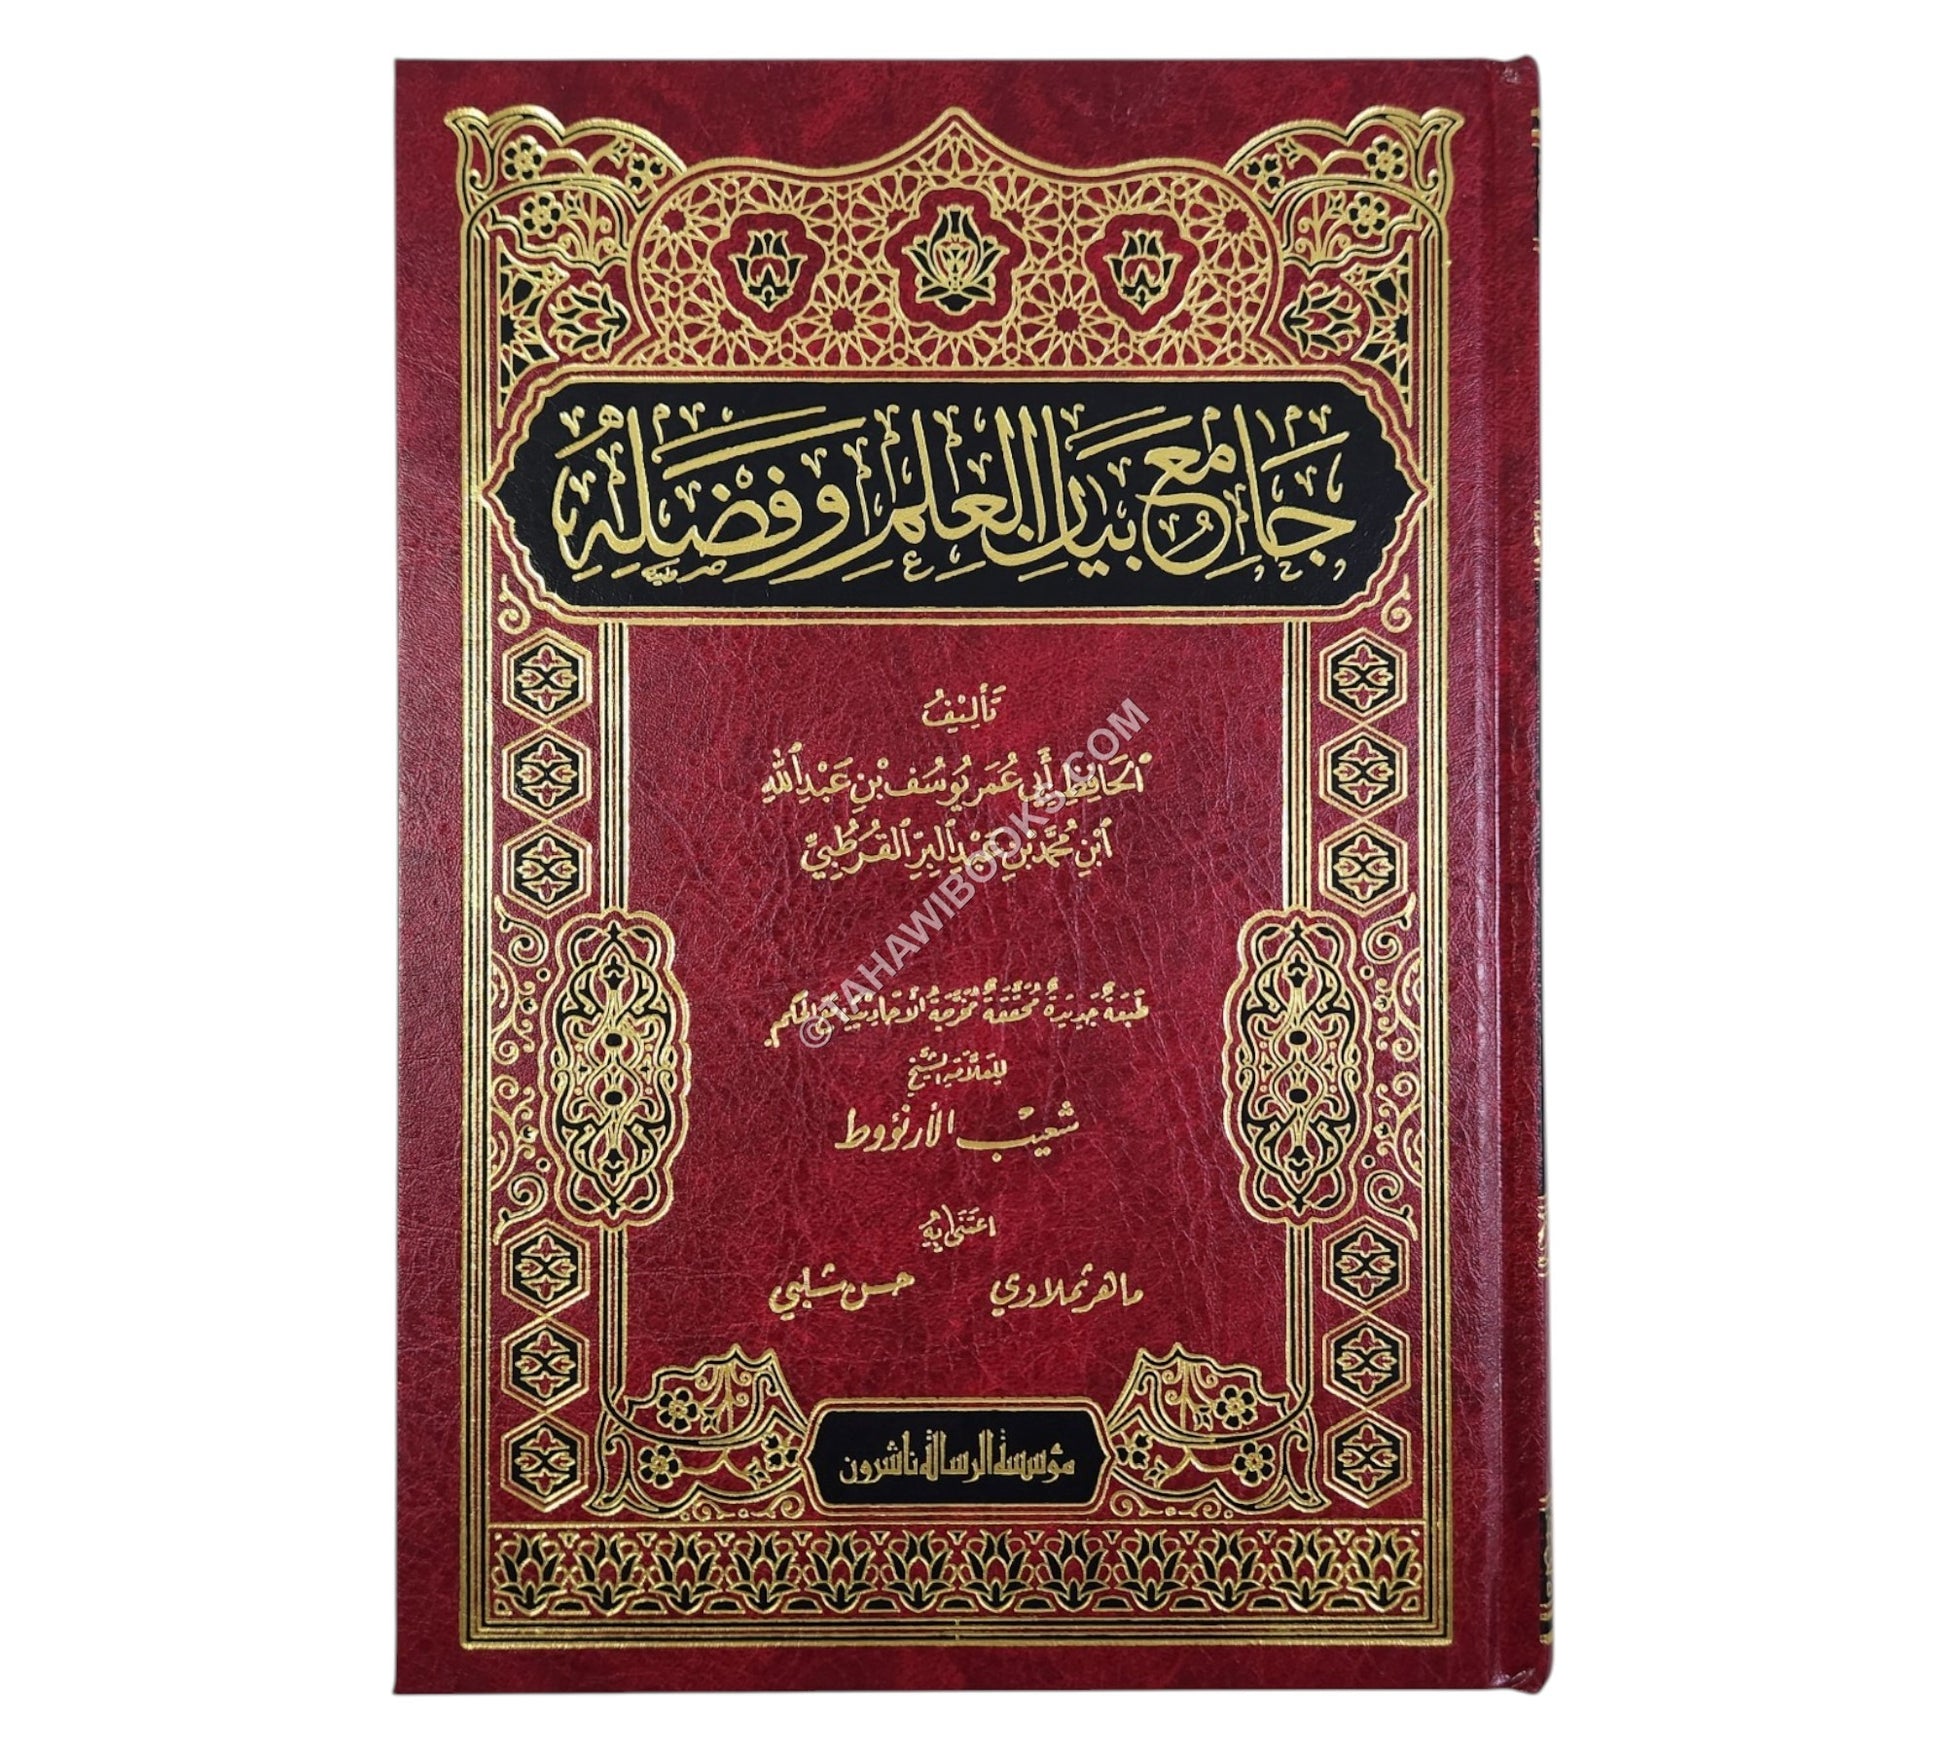 جَامِعُ بَيَانِ الْعِلْمِ وَفَضْلِهِ
تَأْلِيْفُ
الْحَافِظِ أَبِي عُمَرَ يُوسُفَ بْنِ عَبْدِ اللهِ
ابْنِ مُحَمَّدِ بْنِ عَبْدِ الْبَرِّ الْقُرْطُبِيِّ
طَبْعَةٌ جَدِيدَةٌ مُحَقَّقَةٌ مُخَرَّجَةُ الْأَحَادِيْثِ مَعَ الْحُكْمِ
لِلْعَلَّامَةِ الشَّيْخِ
شُعَيْب الأرنؤوط
اعْتَنَى بِهِ
ماهر ثملاوي حسن شلبي
مؤسسة الرسالة ناشرون
©TAHAWIBOOKS.COM